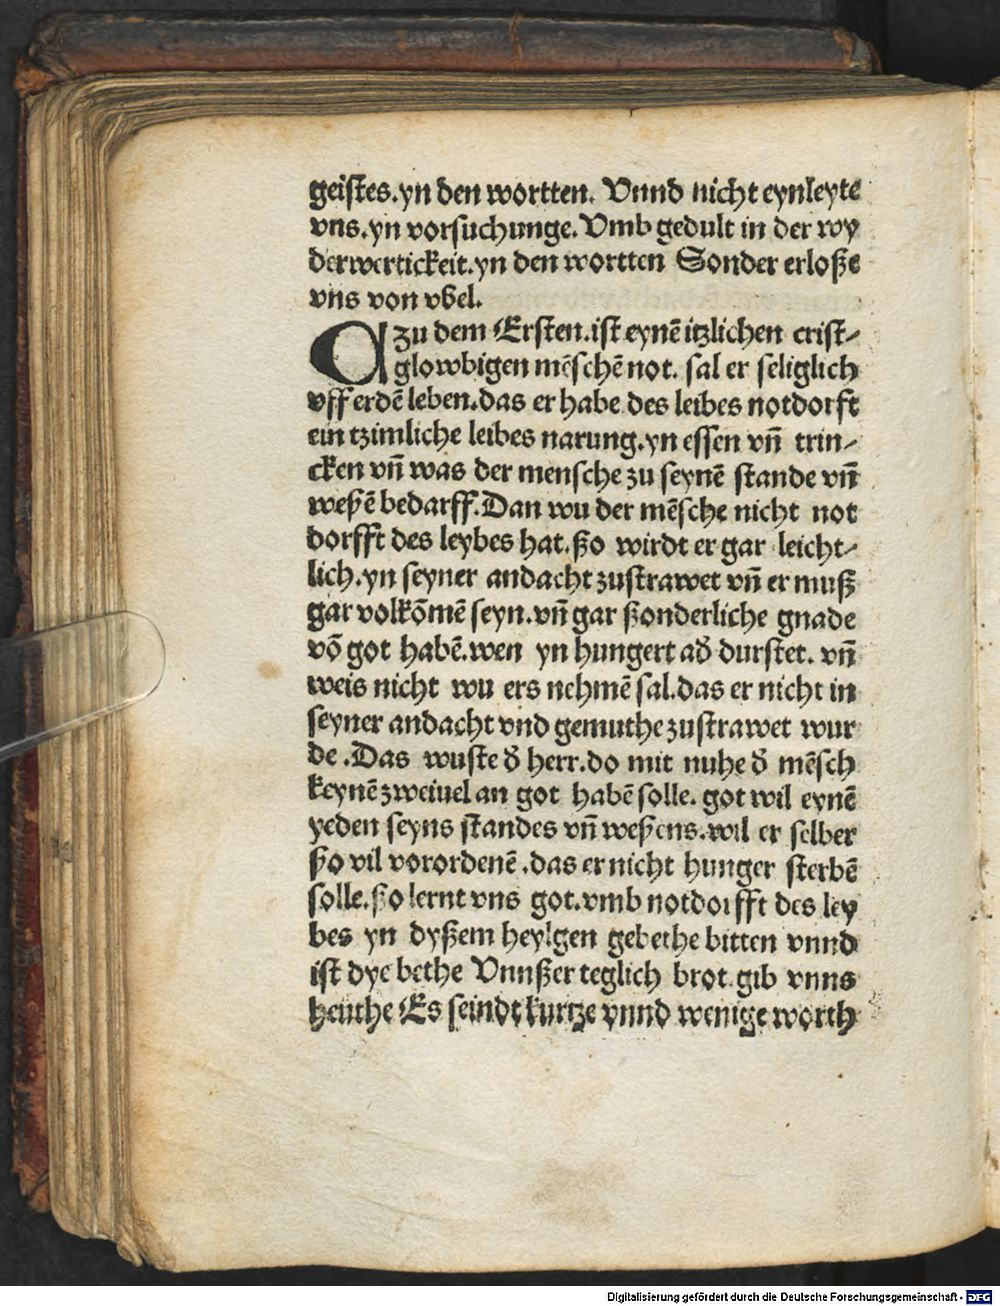 geistes.yn den wortten. Vnnd nicht eynleyte
vns.yn vorsuchunge. Vmb gedult in der wy
derwertickeit.yn den wortten Sonder erloße
vns von vbel.
Czu dem Ersten.ist eynē itzlichen crist⸗
glowbigen mēschē not. sal er seliglich
vff erdē leben.das er habe des leibes notdorft
ein tzimliche leibes narung.yn essen vn̄ trin⸗
cken vn̄ was der mensche zu seynē stande vn̄
weßē bedarff.Dan wu der mēsche nicht not
dorfft des leybes hat.ßo wirdt er gar leicht⸗
lich.yn seyner andacht zustrawet vn̄ er muß
gar volkōmē seyn.vn̄ gar ßonderliche gnade
vō got habē.wen yn hungert ad̾ durstet. vn̄
weis nicht wu ers nehmē sal.das er nicht in
seyner andacht vnd gemuthe zustrawet wur
de .Das wuste d̾ herr.do mit nuhe d̾ mēsch
keynē zweiuel an got habē solle. got wil eynē
yeden seyns standes vn̄ weßens.wil er selber
ßo vil vorordenē .das er nicht hunger sterbē
solle.ßo lernt vns got.vmb notdorfft des ley
bes yn dyßem heylgen gebethe bitten vnnd
ist dye bethe Vnnßer teglich brot gib vnns
heuthe Es seindt kurtze vnnd wenige worth
Digitalisierung gefördert durch die Deutsche Forschungsgemeinschaft - DFG